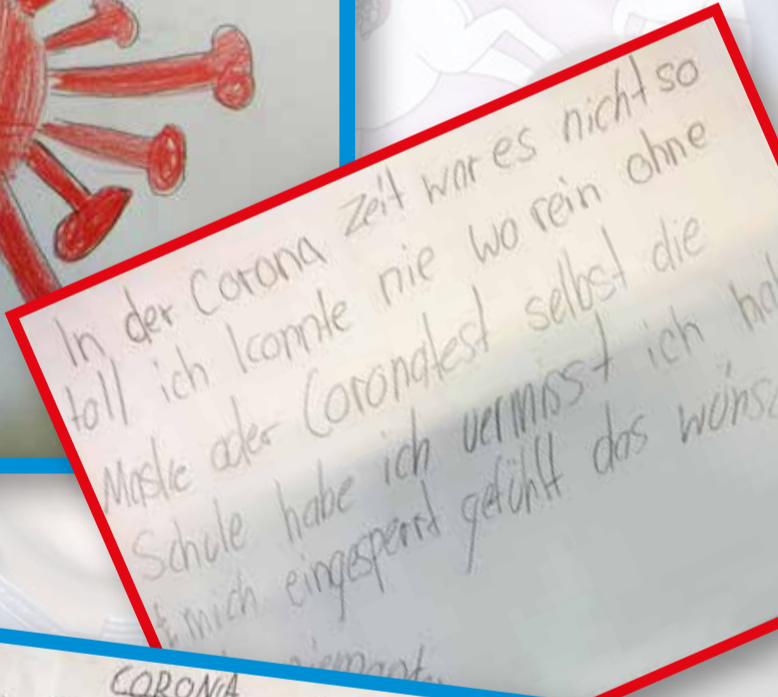 In der Corona Zeit war es nicht so
toll ich konnte nie wo rein ohne
Maske oder Coronatest selbst die
Schule habe ich vermisst ich ha
t mich eingesperrt gefühlt das wünsc
niemant
CORONA